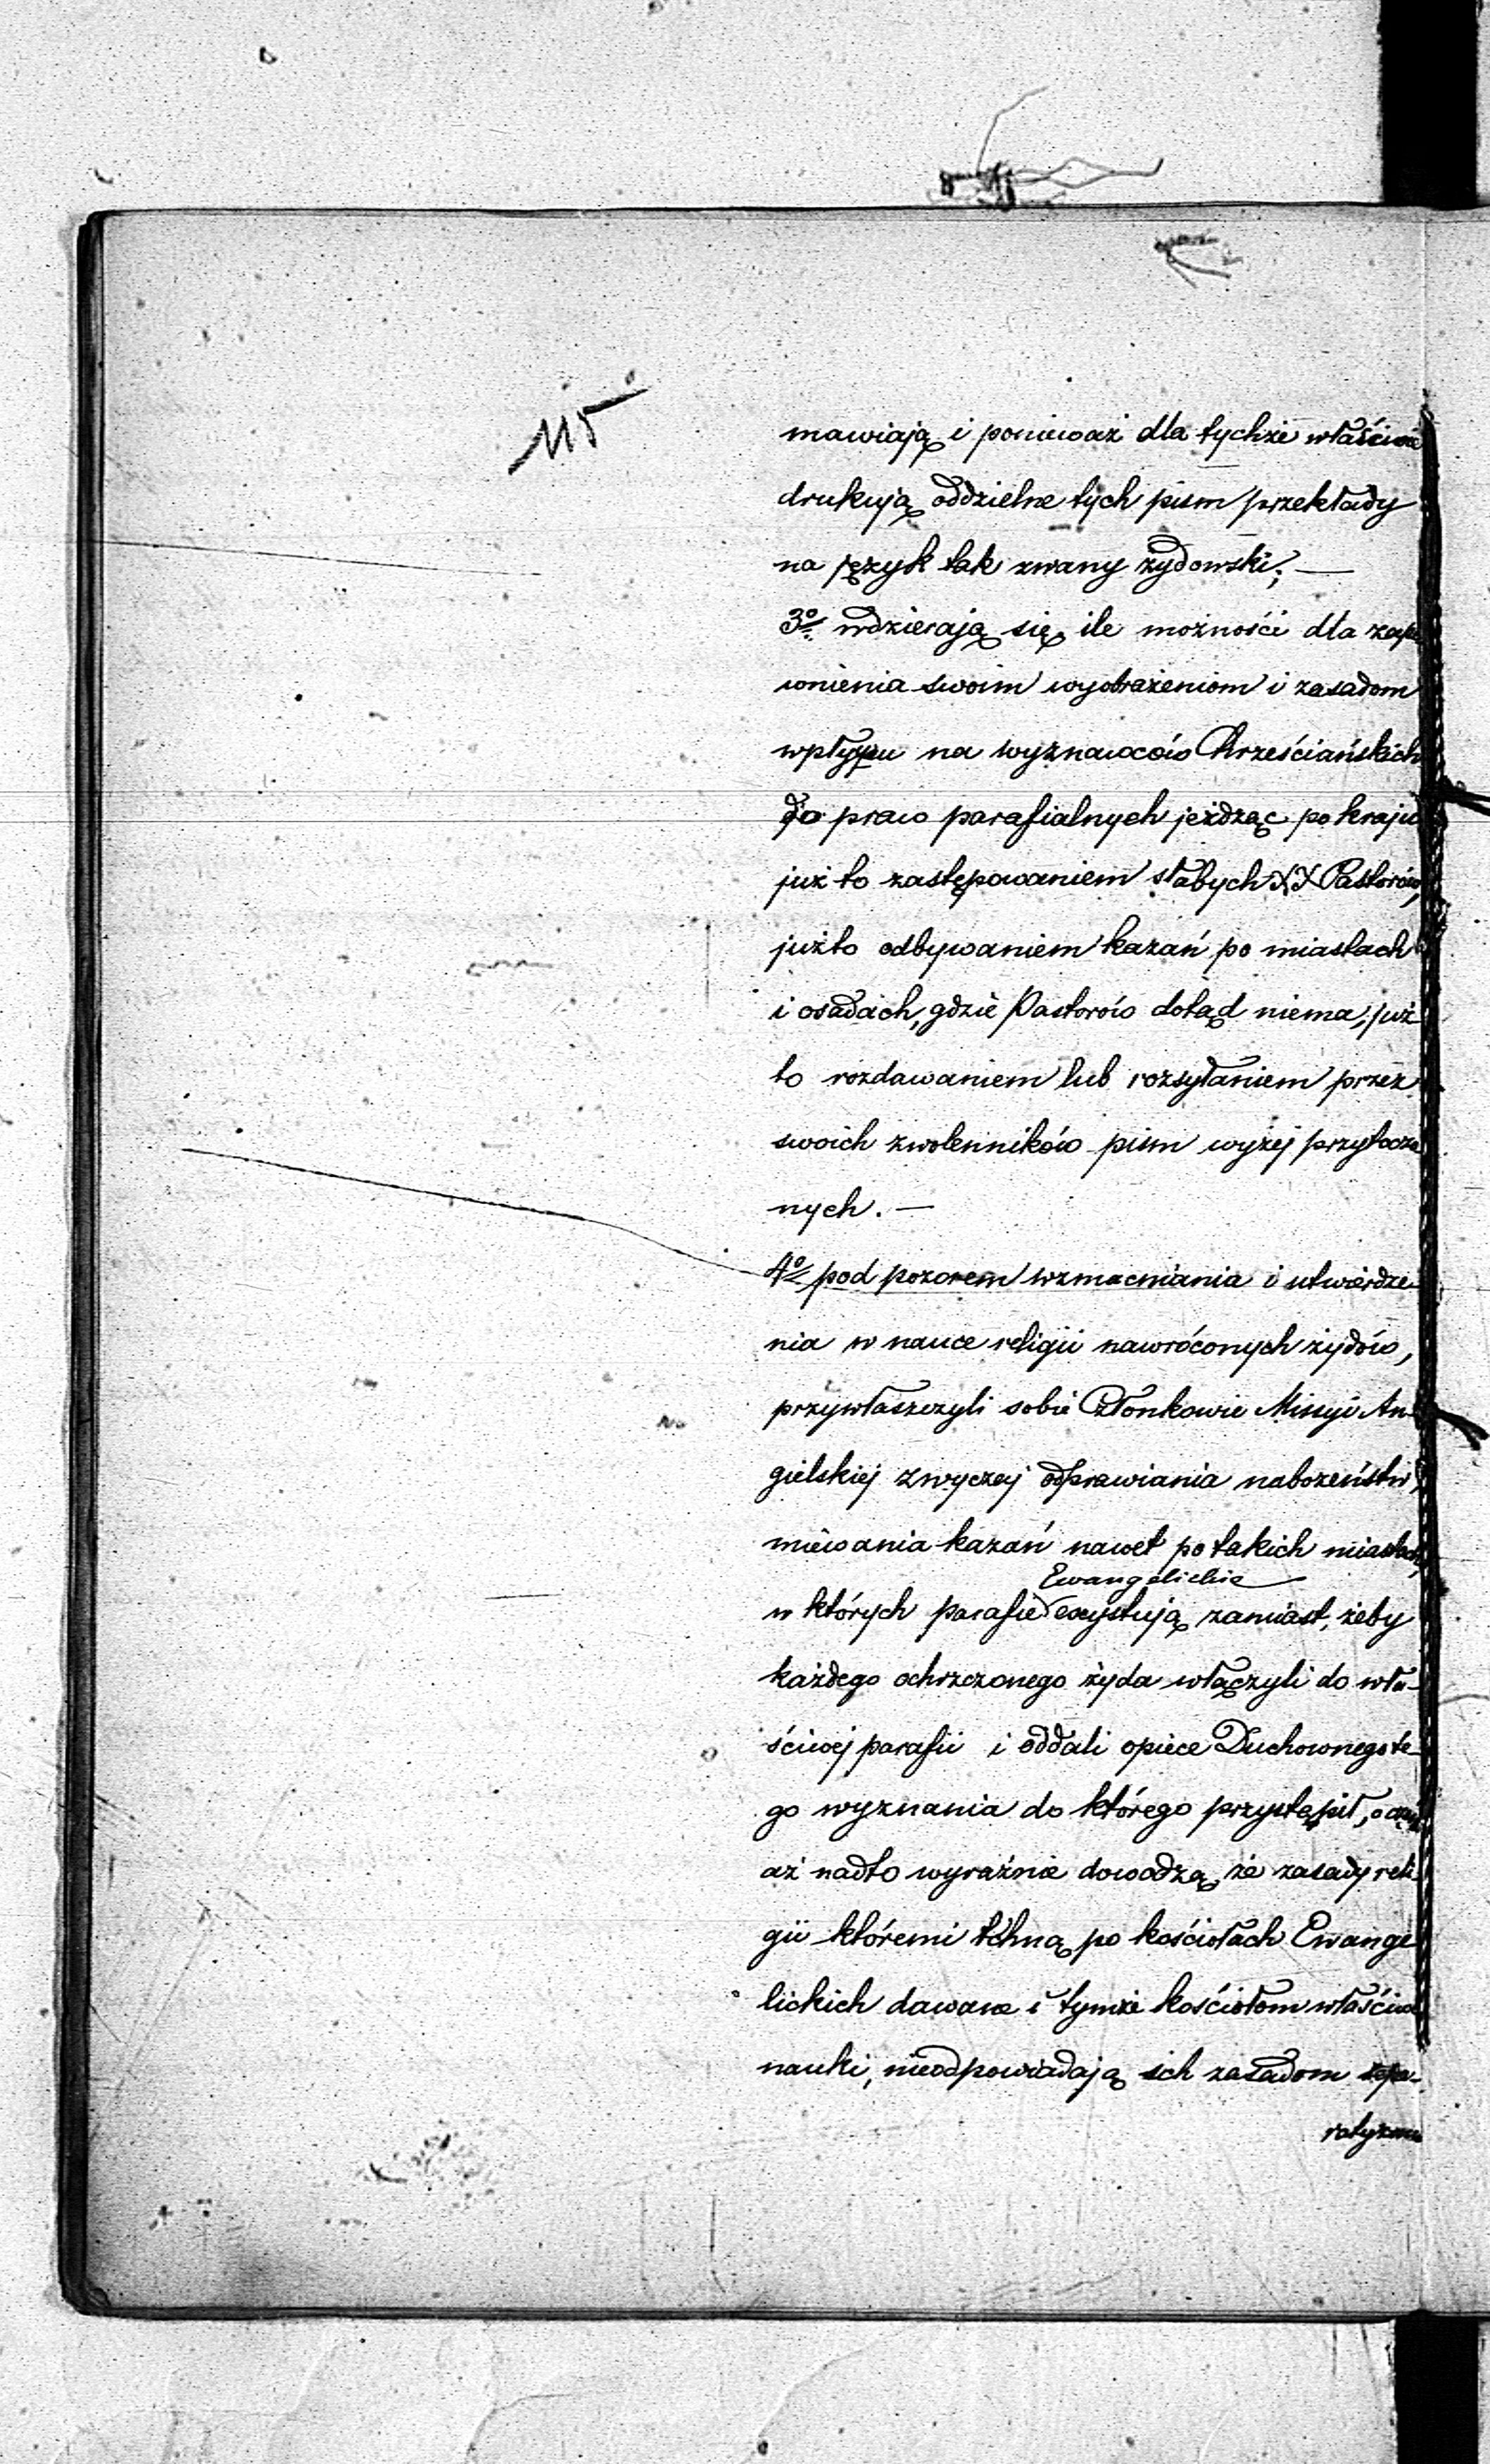 115
mawiają i ponieważ dla tychże właściwie
drukują oddzielne tych pism przekłady
na język tak zwany żydowski; —
3o wdzierają się, ile możności dla zape
wnienia swoim wyobrażeniom i zasadom
wpływu na wyznawców Chrześciańskich
do praw parafialnych jeżdżąc po kraju
już to zastępowaniem słabych XX Pastorów,
już to odbywaniem kazań po miastach
i osadach, gdzie Pastorów dotąd niema, już
to rozdawaniem lub rozsyłaniem przez
swoich zwolenników pism wyżej przytocze
nych. —
4o pod pozorem wzmacniania i utwierdze
nia w nauce religii nawróconych żydów,
przywłaszczyli sobie Członkowie Missyi An
gielskiej zwyczaj odprawiania nabożeństw,
miewania kazań nawet po takich miastach,
Ewangelickie
w których parafie exystują, zamiast, żeby
każdego ochrzczonego żyda włączyli do wła-
ściwej parafii i oddali opiece Duchownego te
go wyznania do którego przystąpił,
aż nadto wyraźnie dowodzą, że zasady reli
gii któremi tchną po kościołach Ewange
lickich dawane i tymże kościołom właściwe
nauki, nieodpowiadają ich zasadom sepa-
ratyzmu